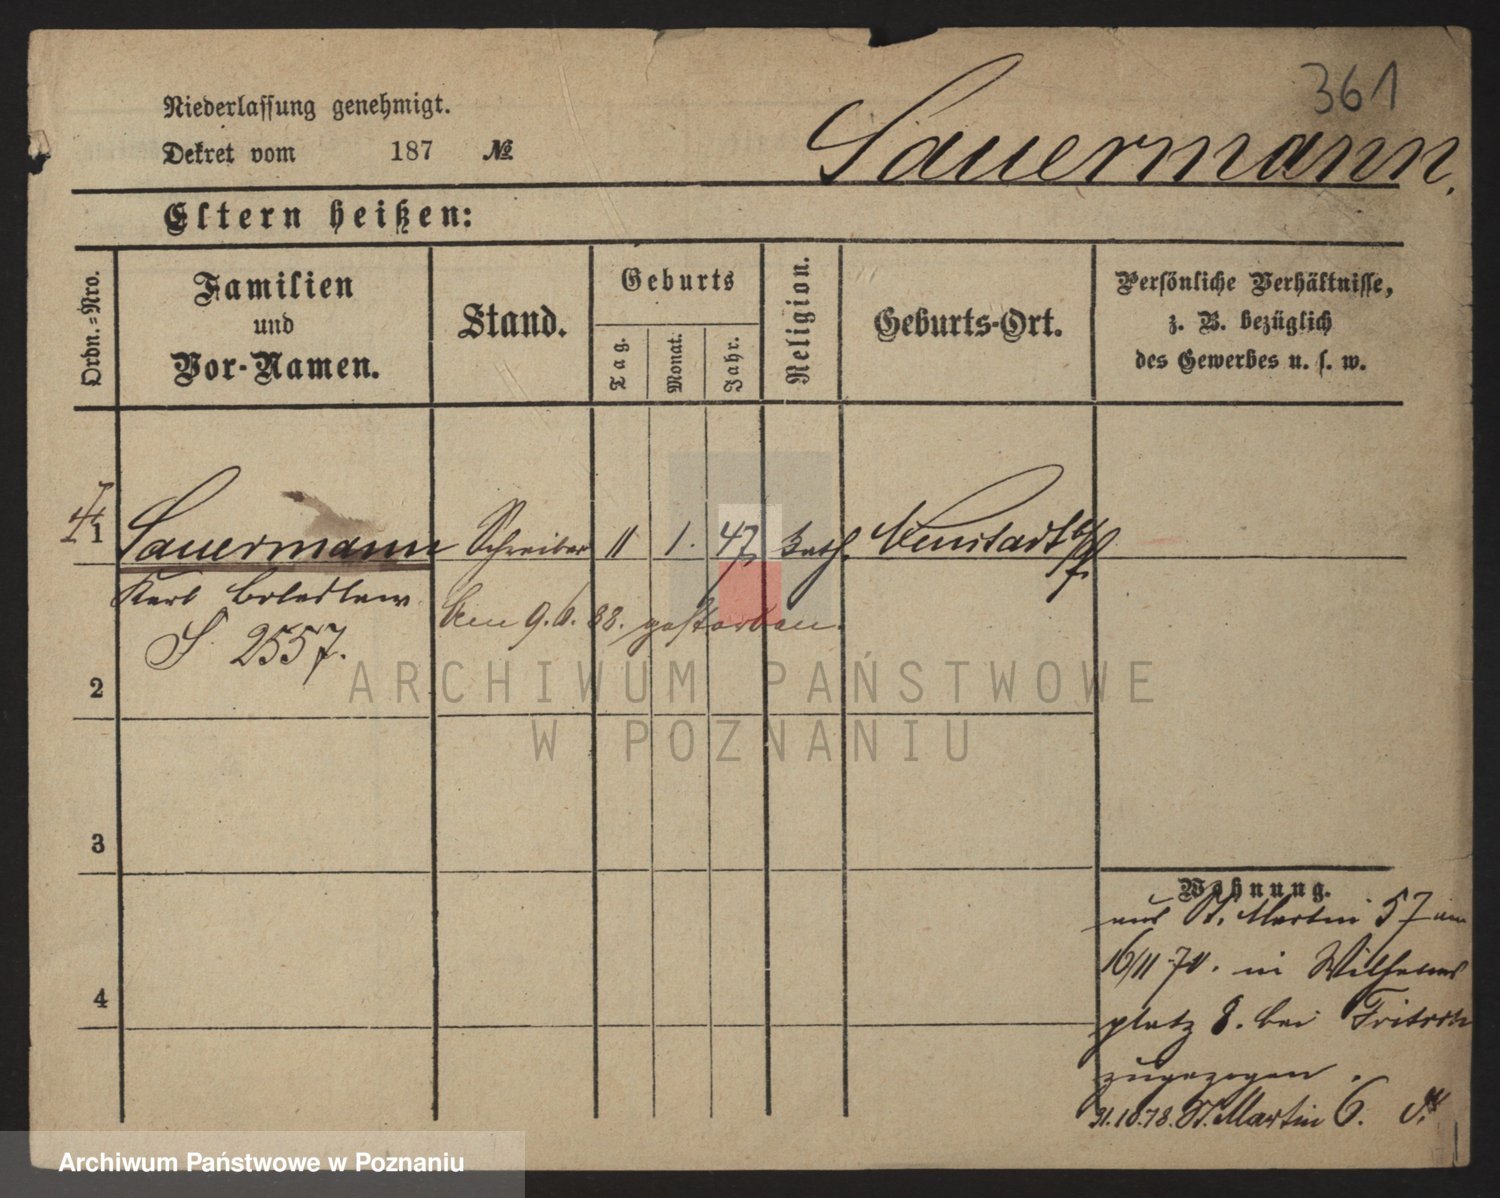 361
Niederlassung genehmigt.
Dekret vom 187 №
Sauermann.
Eltern heißen:
Ordn.-Nro.
Familien
und
Vor-Namen.
Stand.
Geburts
Tag.
Monat.
Jahr.
Religion.
Geburts-Ort.
Persönliche Verhältnisse,
z. B. bezüglich
des Gewerbes u. s. w.
1 Sauermann Schreiber 11 1. 47 kath. Neustadt
Karl Boleslaw
den 9. 6. 88. gestorben.
S 2557.
2
3
4
Wohnung.
aus St. Martin 57 am
16/11 70. in Wilhelms
platz 8. bei Fritsch
zugezogen.
31.10.78. St. Martin 6.
ARCHIWUM PAŃSTWOWE
W POZNANIU
Archiwum Państwowe w Poznaniu